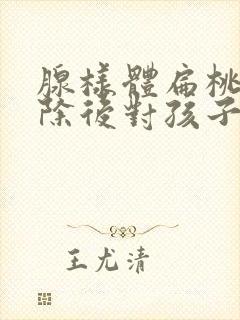 腺樣體扁桃
除後對孩子
王尤清